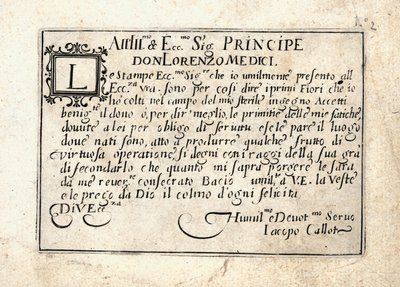 1. 2
All Ill.mo & Ecc.mo Sig. PRINCIPE
DON LORENZO MEDICI.
Le Stampe Ecc.mo Sig.re che io umilmente presento all
Ecc.za vra. sono per cosi dire i primi Fiori che io
ho colti nel campo del mio sterile ingegno Accetti
benig.te il dono ò, per dir meglio, le primitie delle mie fatiche,
dovute a lei per obligo di seruitu e se le pare il luogo
doue nati sono, atto à produrre qualche frutto di
virtuosa operatione, si degni con i raggi della sua gra
di fecondarlo che quanto mi sapra porgere le sara
da me reuer.te consecrato Bacio umil.te a V.E. la Veste
e le prego da Dio il colmo d'ogni felicita
Di V. Ecc.za
Humil.e Deuot.mo Seruo
Iacopo Callot